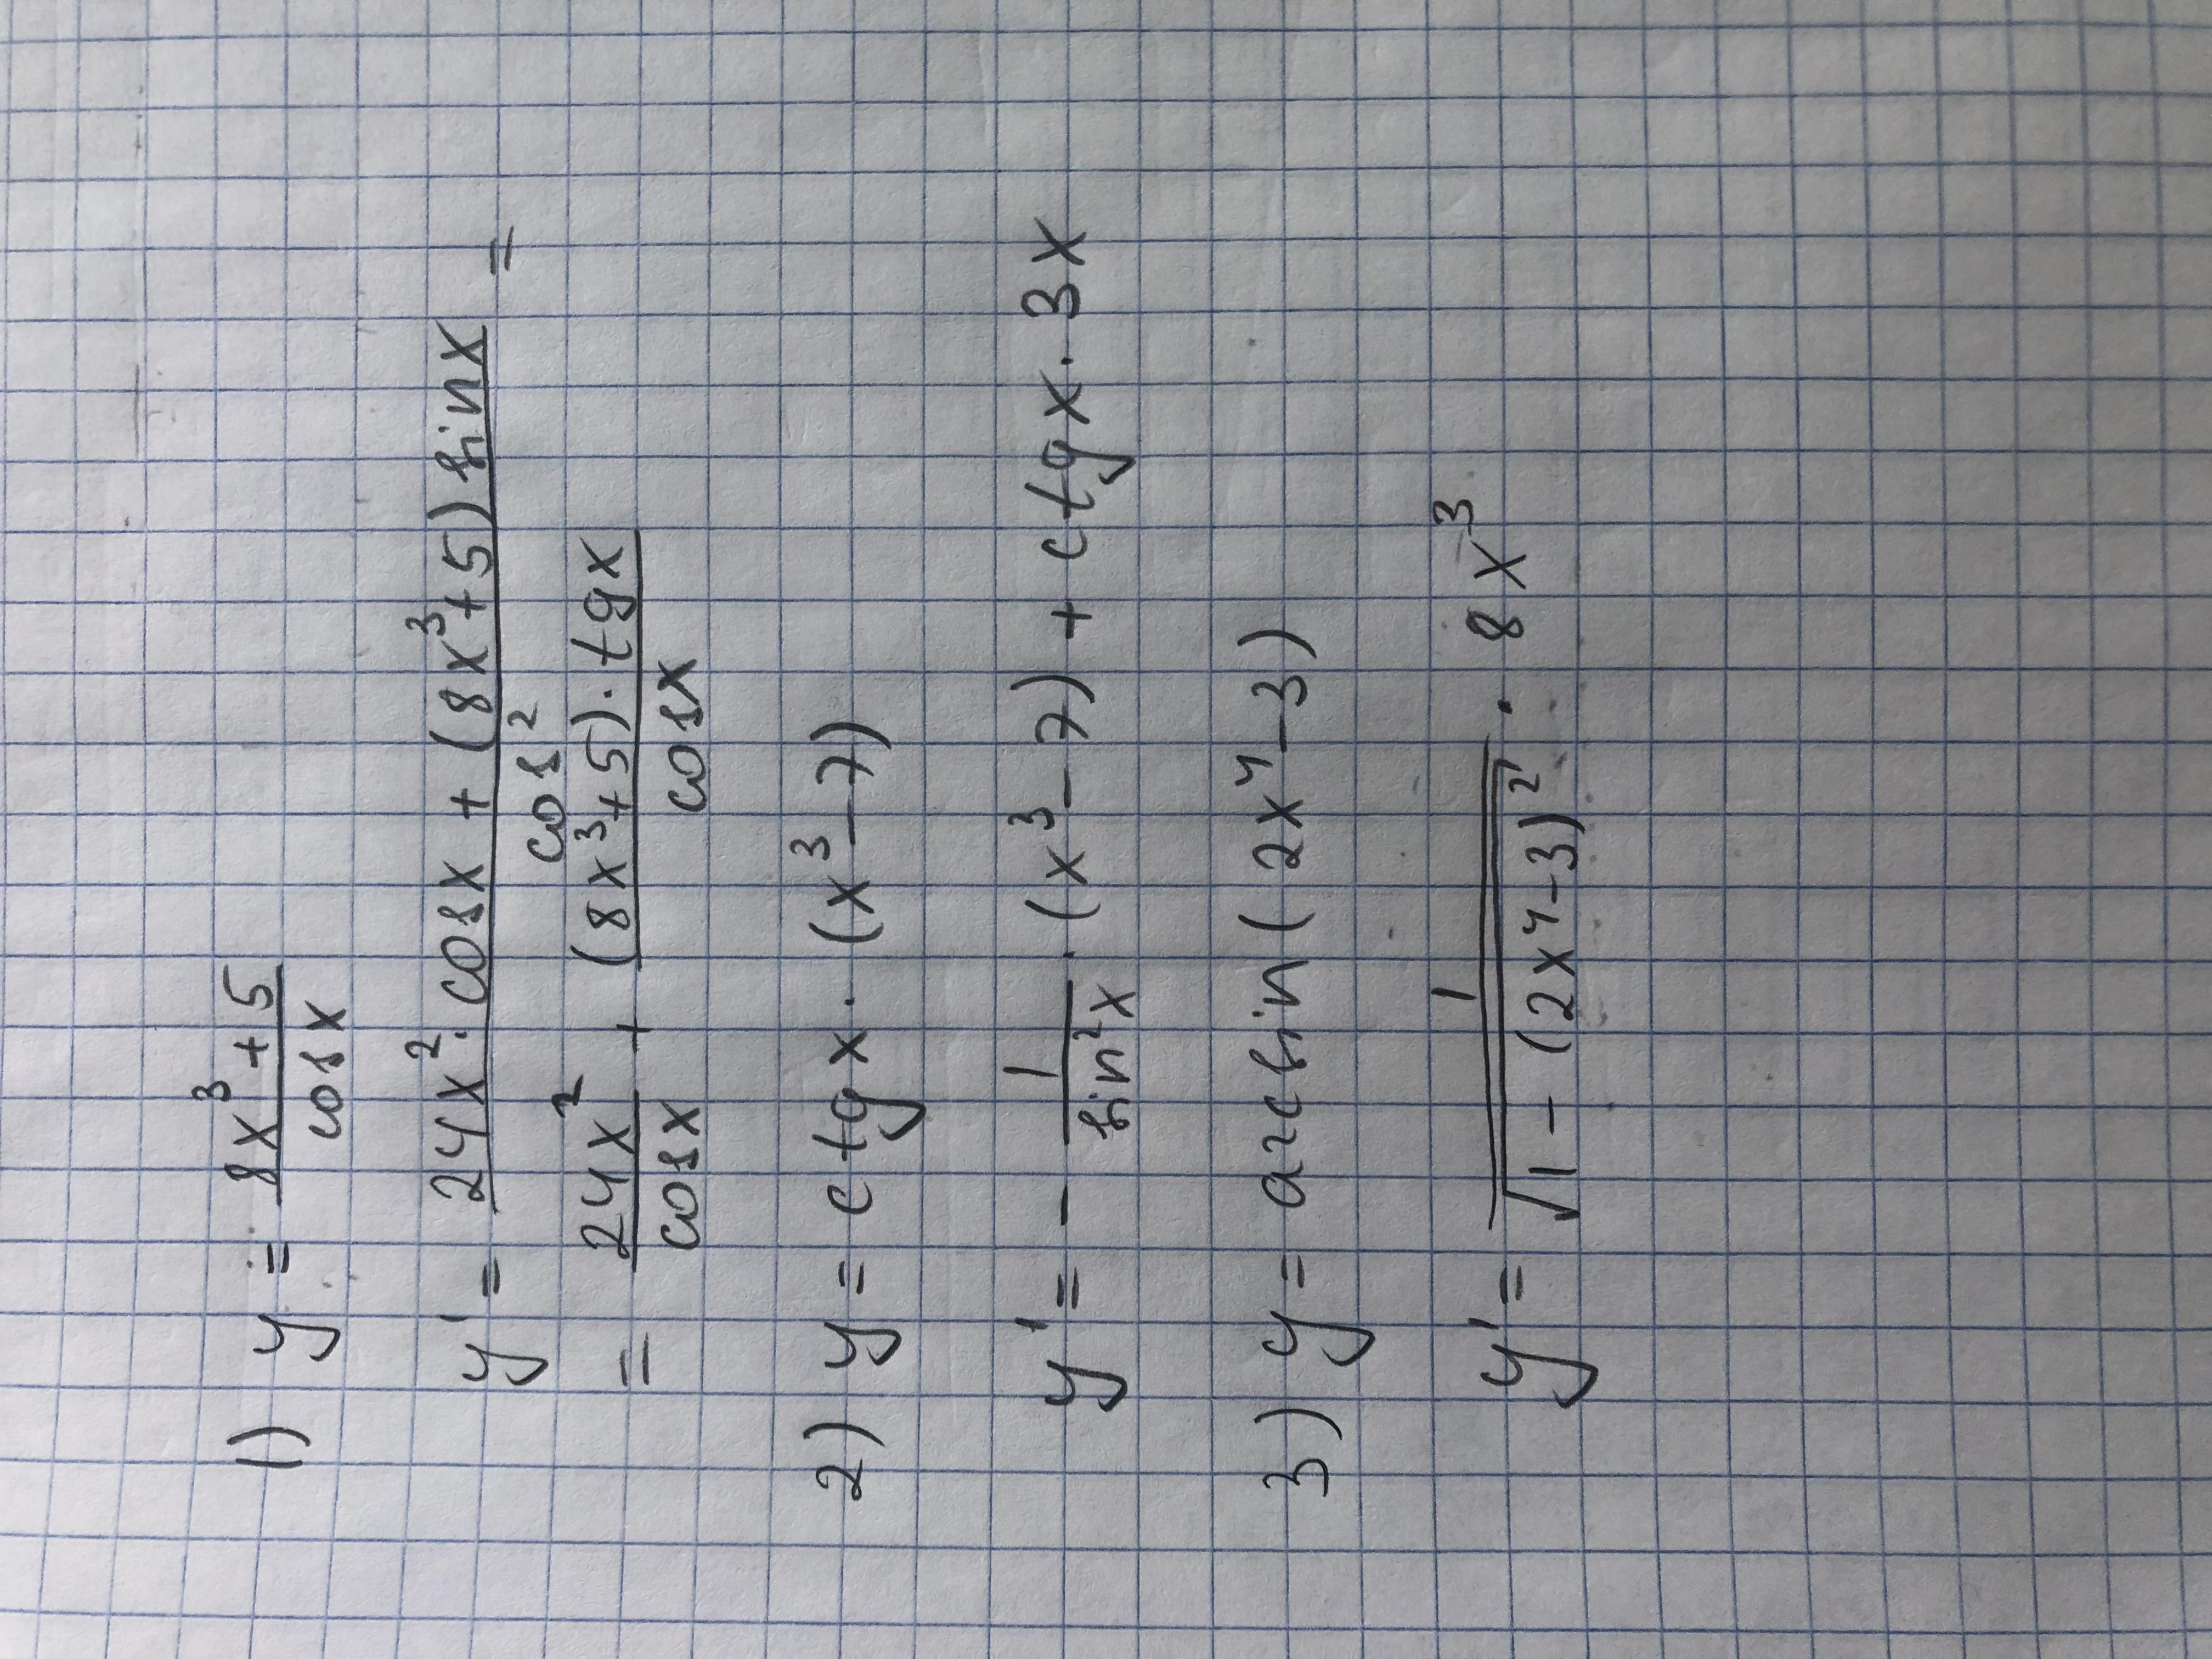 1) y = (8x³ + 5)/(cos x)
y' = (24x² · cos x + (8x³ + 5) sin x)/(cos²) =
= (24x²)/(cos x) + ((8x³ + 5) · tg x)/(cos x)
2) y = ctg x · (x³ - 7)
y' = - 1/(sin² x) · (x³ - 7) + ctg x · 3x
3) y = arcsin (2x⁴ - 3)
y' = 1/√(1 - (2x⁴ - 3)²) · 8x³